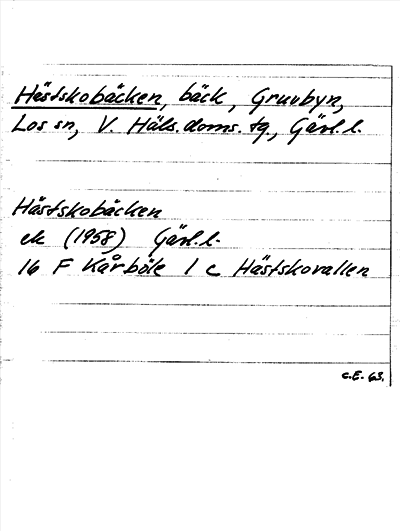 Hästskobäcken, bäck, Gruvbyn,
Los sn, V. Häls. doms. tg., Gävl. l.
Hästskobäcken
ek (1958) Gävl. l.
16 F Kårböle 1 c Hästskovallen
C.E. 63.